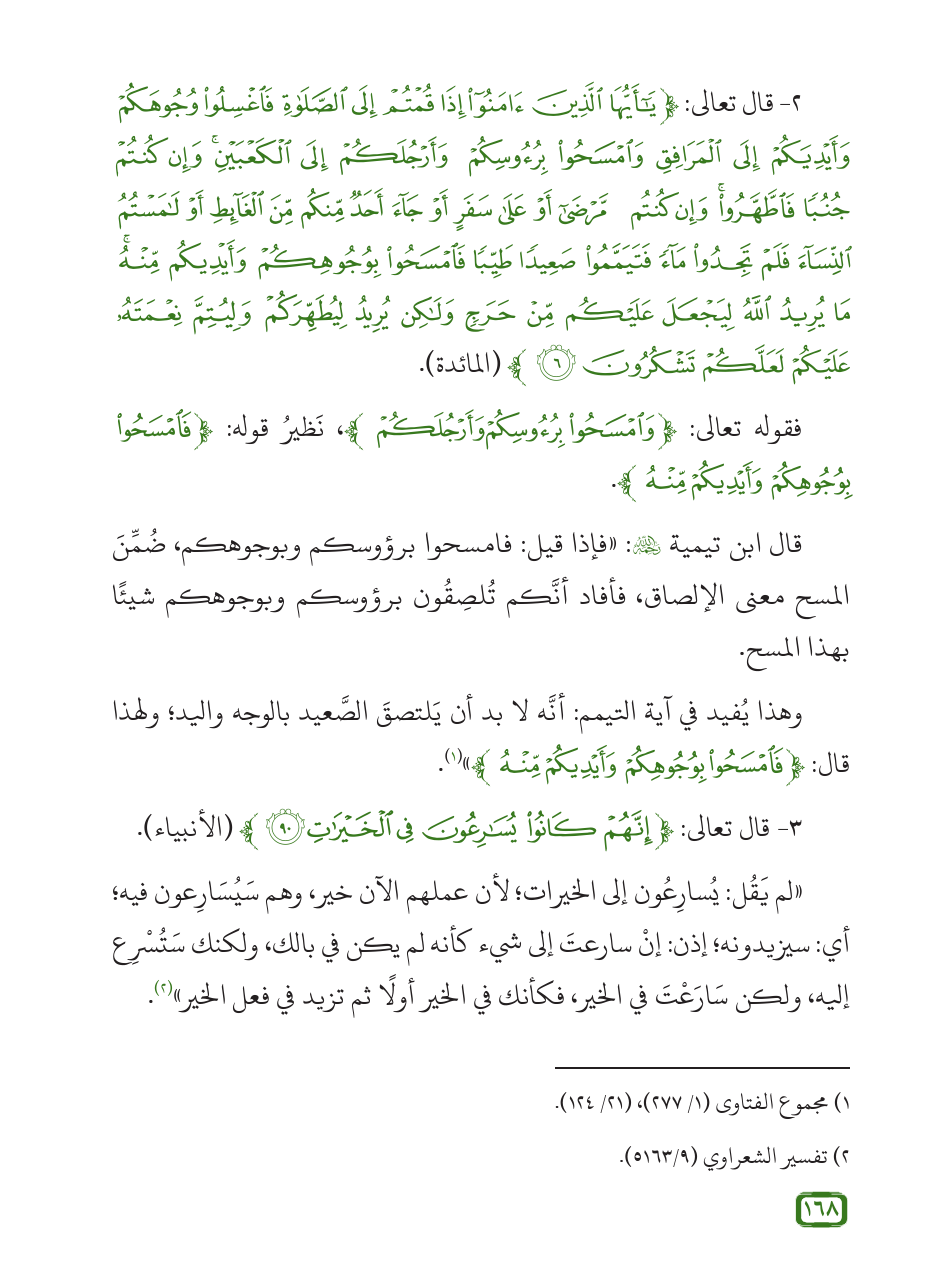 ٢- قال تعالى: ﴿ يَٰٓأَيُّهَا ٱلَّذِينَ ءَامَنُوٓا۟ إِذَا قُمْتُمْ إِلَى ٱلصَّلَوٰةِ فَٱغْسِلُوا۟ وُجُوهَكُمْ
وَأَيْدِيَكُمْ إِلَى ٱلْمَرَافِقِ وَٱمْسَحُوا۟ بِرُءُوسِكُمْ وَأَرْجُلَكُمْ إِلَى ٱلْكَعْبَيْنِ ۚ وَإِن كُنتُمْ
جُنُبًا فَٱطَّهَّرُوا۟ ۚ وَإِن كُنتُم مَّرْضَىٰٓ أَوْ عَلَىٰ سَفَرٍ أَوْ جَآءَ أَحَدٌ مِّنكُم مِّنَ ٱلْغَآئِطِ أَوْ لَٰمَسْتُمُ
ٱلنِّسَآءَ فَلَمْ تَجِدُوا۟ مَآءً فَتَيَمَّمُوا۟ صَعِيدًا طَيِّبًا فَٱمْسَحُوا۟ بِوُجُوهِكُمْ وَأَيْدِيكُم مِّنْهُ ۚ
مَا يُرِيدُ ٱللَّهُ لِيَجْعَلَ عَلَيْكُم مِّنْ حَرَجٍ وَلَٰكِن يُرِيدُ لِيُطَهِّرَكُمْ وَلِيُتِمَّ نِعْمَتَهُۥ
عَلَيْكُمْ لَعَلَّكُمْ تَشْكُرُونَ ٦ ﴾ (المائدة).
فقوله تعالى: ﴿ وَٱمْسَحُوا۟ بِرُءُوسِكُمْ وَأَرْجُلَكُمْ ﴾، نَظيرُ قوله: ﴿ فَٱمْسَحُوا۟
بِوُجُوهِكُمْ وَأَيْدِيكُم مِّنْهُ ﴾.
قال ابن تيمية ﵀: «فإذا قيل: فامسحوا برؤوسكم وبوجوهكم، ضُمِّنَ
المسح معنى الإلصاق، فأفاد أنَّكم تُلصِقُون برؤوسكم وبوجوهكم شيئًا
بهذا المسح.
وهذا يُفيد في آية التيمم: أنَّه لا بد أن يَلتصقَ الصَّعيد بالوجه واليد؛ ولهذا
قال: ﴿ فَٱمْسَحُوا۟ بِوُجُوهِكُمْ وَأَيْدِيكُم مِّنْهُ ﴾»(١).
٣- قال تعالى: ﴿ إِنَّهُمْ كَانُوا۟ يُسَٰرِعُونَ فِى ٱلْخَيْرَٰتِ ٩٠ ﴾ (الأنبياء).
«لم يَقُل: يُسارِعُون إلى الخيرات؛ لأن عملهم الآن خير، وهم سَيُسَارِعون فيه؛
أي: سيزيدونه؛ إذن: إنْ سارعتَ إلى شيء كأنه لم يكن في بالك، ولكنك سَتُسْرِع
إليه، ولكن سَارَعْتَ في الخير، فكأنك في الخير أولًا ثم تزيد في فعل الخير»(٢).
١) مجموع الفتاوى (١/ ٢٧٧)، (٢١/ ١٢٤).
٢) تفسير الشعراوي (٥١٦٣/٩).
١٦٨